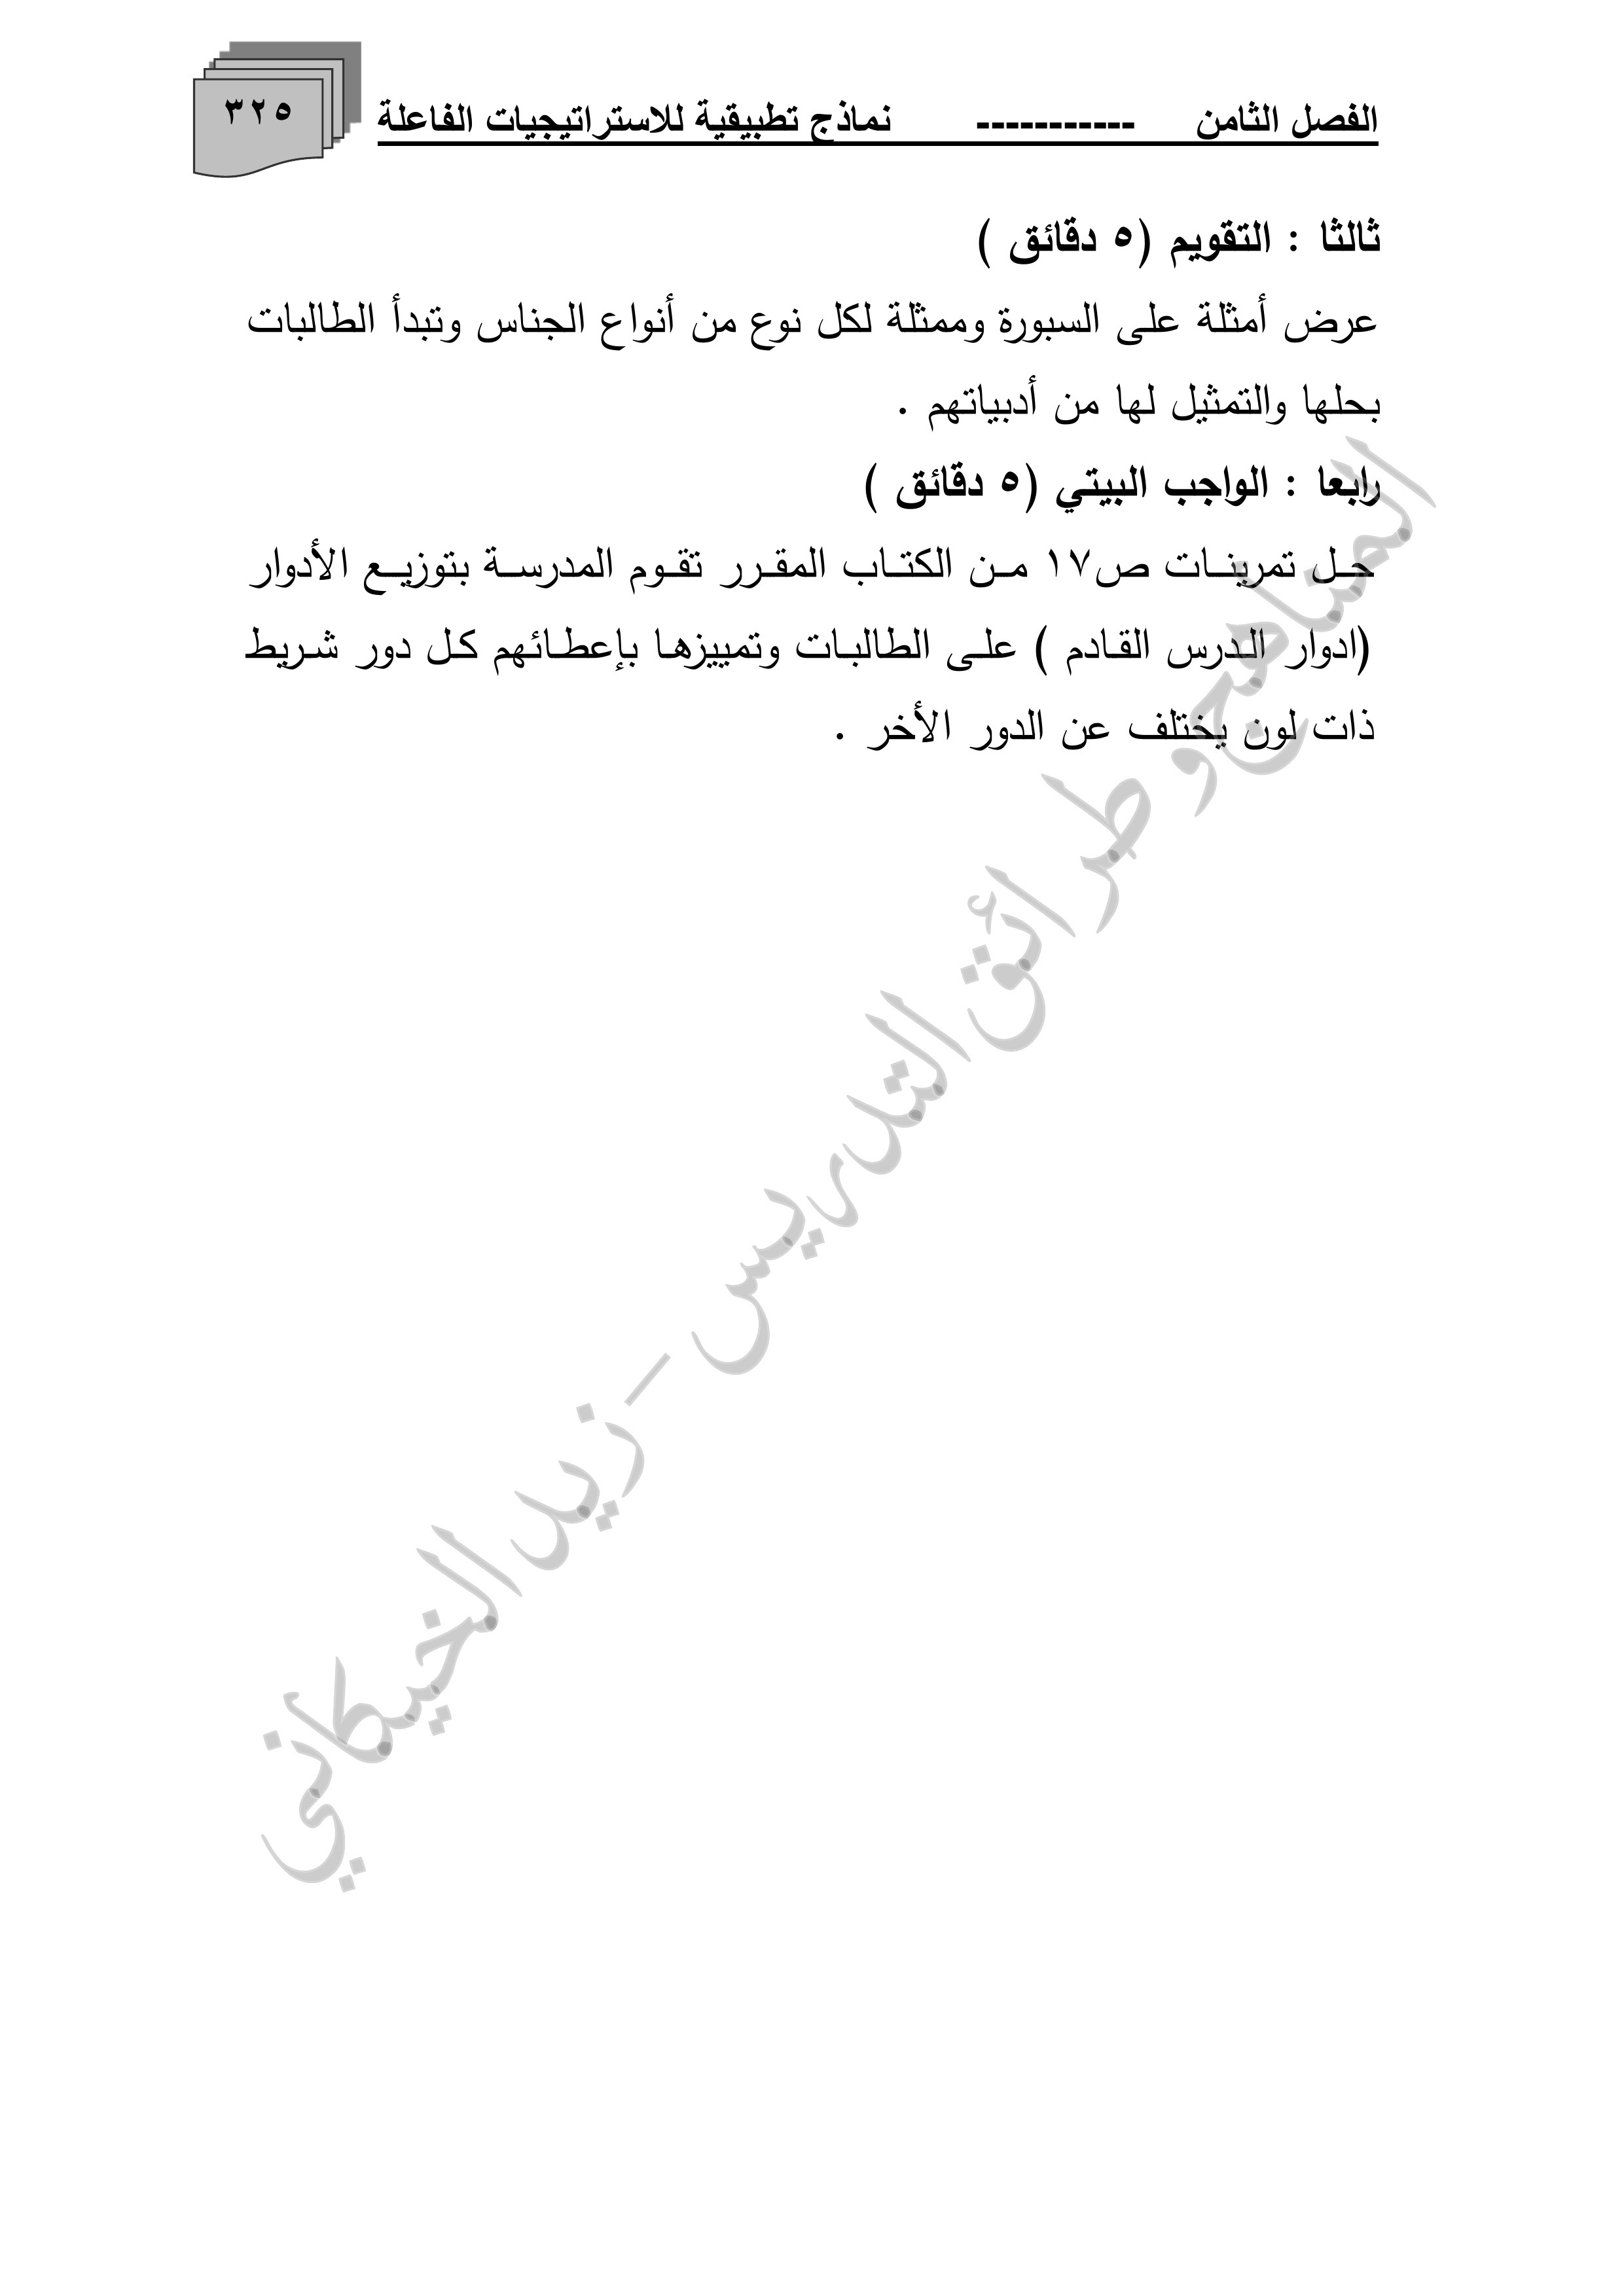 الفصل الثامن ----------- نماذج تطبيقية للاستراتيجيات الفاعلة
٣٢٥
ثالثا : التقويم (٥ دقائق )
عرض أمثلة على السبورة وممثلة لكل نوع من أنواع الجناس وتبدأ الطالبات
بحلها والتمثيل لها من أدبياتهم .
رابعا : الواجب البيتي (٥ دقائق )
حل تمرينات ص١٧ من الكتاب المقرر تقوم المدرسة بتوزيع الأدوار
(ادوار الدرس القادم ) على الطالبات وتمييزها بإعطائهم كل دور شريط
ذات لون يختلف عن الدور الأخر .
المناهج وطرائق التدريس - زيد الخيكاني